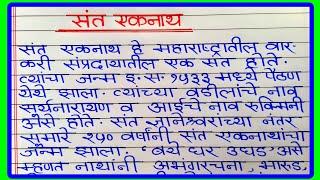 संत एकनाथ
संत एकनाथ हे महाराष्ट्रातील वार-
करी संप्रदायातील एक संत होते.
त्यांचा जन्म इ.स. १५३३ मध्ये पैठण
येथे झाला. त्यांच्या वडीलांचे नाव
सूर्यनारायण व आईचे नाव रुक्मिनी
असे होते. संत ज्ञानेश्वरांच्या नंतर
सुमारे २५० वर्षांनी संत एकनाथांचा
जन्म झाला. 'बये दार उघड' असे
म्हणत नाथांनी अभंगरचना, भारुड,